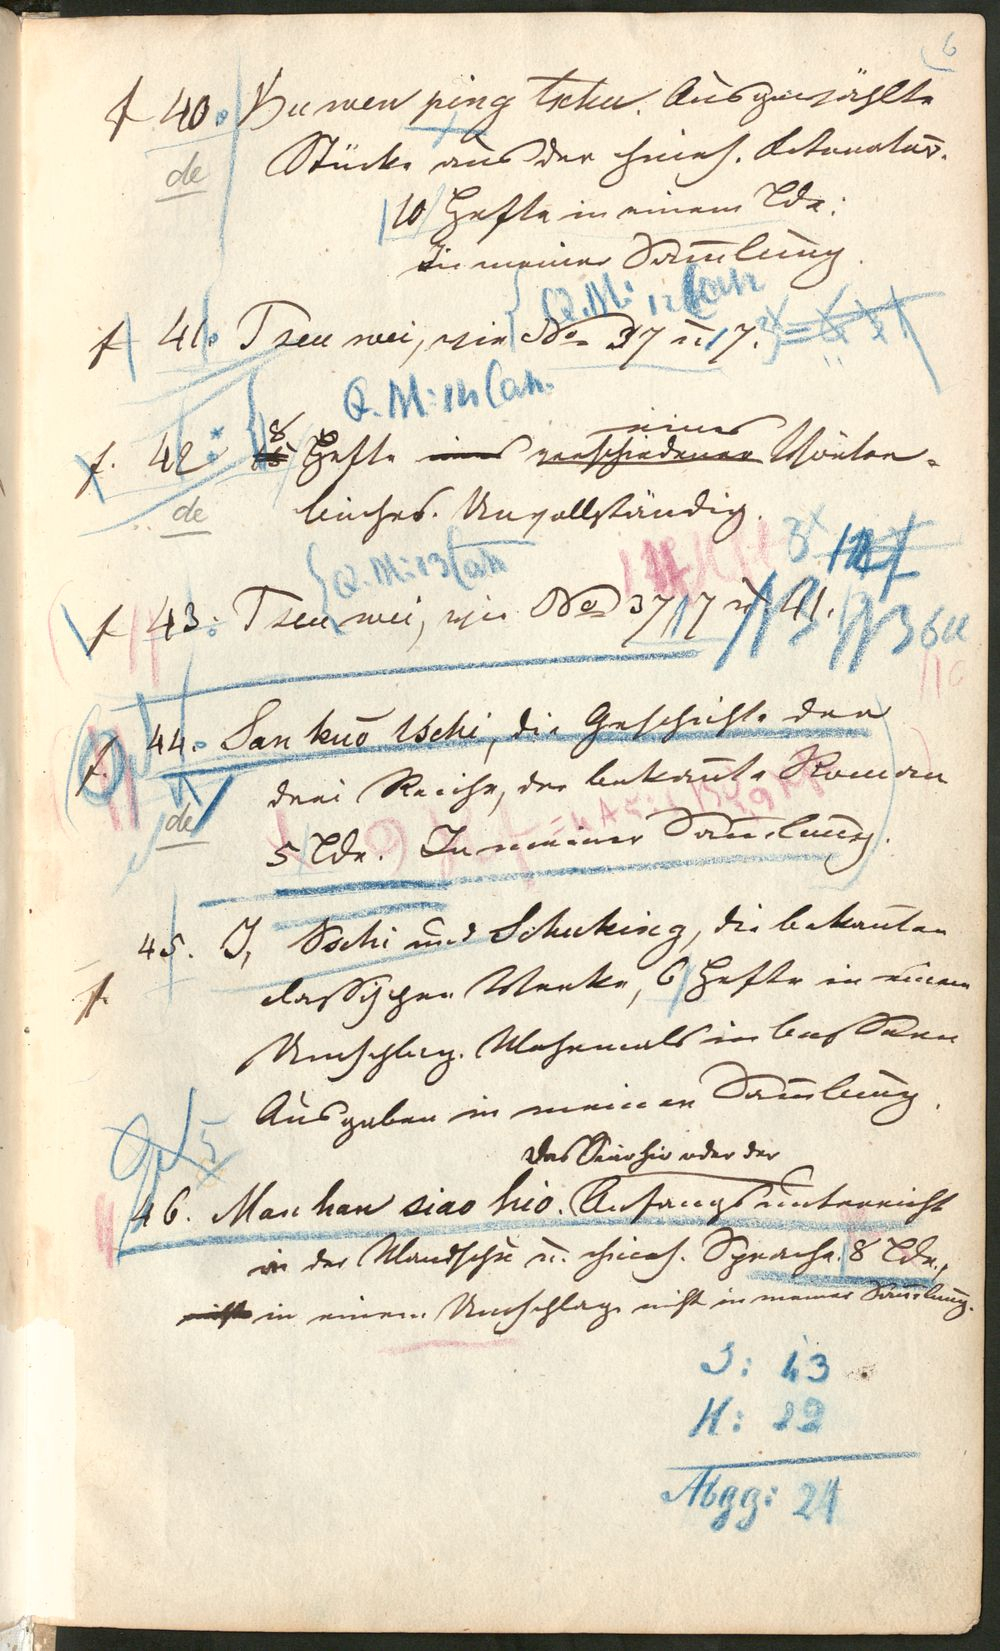 6
f 40. Ku wen ping tschu. Ausgewählte
de
Stücke aus der chines. Literatur.
10 Hefte in einem Bde.
In meiner Sam̅lung.
Q.M: 12
f 41. Tseu wei, wie No 37 u 17.
Q.M: 14
f. 42 8 Hefte eines verschiedener Wörter-
eines
de
buches. Unvollständig.
Q.M: 13
f 43. Tseu wei, wie No 37 17 u 41.
f. 44. San kuŏ tschi, die Geschichte der
drei Reiche, der bekan̅te Roman
de
5 Bde. In meiner Sam̅lung.
45. I, Schi und Schuking, die bekan̅ten
f.
classischen Werke, 6 Hefte in einem
Umschlag. Mehrmals in besseren
Ausgaben in meiner Sam̅lung.
5
das Siao hio oder der
46. Man han siao hio. Anfangsunterricht
in der Mandschu u. chines. Sprache. 8 Bde.,
nicht in einem Umschlage nicht in meiner Sam̅lung.
S: 43
H: 22
Abgg: 24